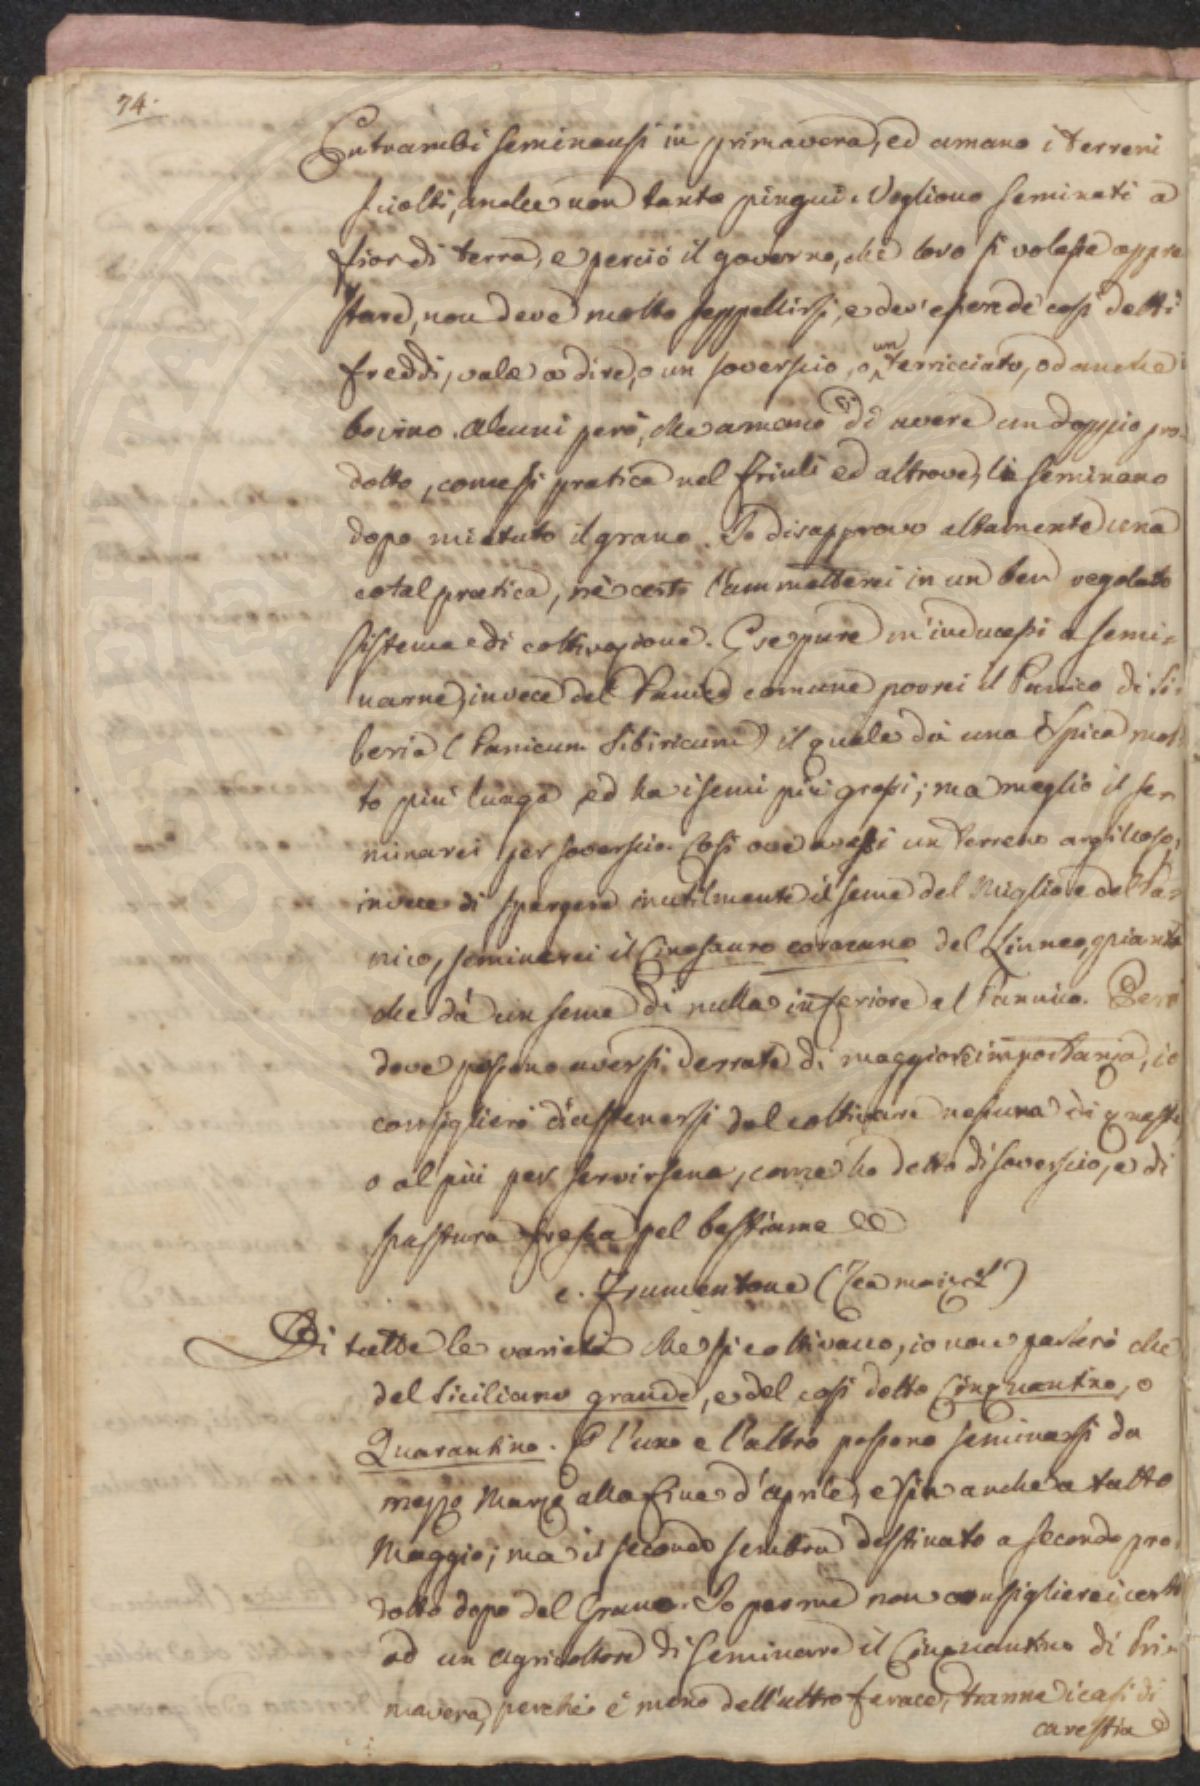 74.
Entrambi seminansi in primavera, ed amano i terreni
sciolti, anche non tanto pingui. Vogliono seminati a
fior di terra, e perciò il governo, che loro si volesse appre
stare, non deve molto seppellirsi, e dev'essere de' così detti
freddi, vale a dire, o un soverscio, o un terricciato, od anche
bovino. Alcuni però, che amano di avere un doppio pro-
dotto, come si pratica nel Friuli ed altrove, li seminano
dopo mietuto il grano. Io disapprovo altamente una
cotal pratica, nè certo l'ammetterei in un ben regolato
sistema di coltivazione. E se pure m'inducessi a semi-
narne, invece del Panico comune porrei il Panico di Si-
beria (Panicum Sibiricum) il quale dà una Spica mol-
to più lunga ed ha i semi più grossi; ma meglio il se-
minarei per soverscio. Così ove avessi un terreno argilloso,
invece di spargere inutilmente il seme del Miglio e del Pa-
nico, seminerei il Cinosauro coracano del Linneo, pianta
che dà un seme di nulla inferiore al Pannico. Però
dove possono aversi derrate di maggiore importanza, io
consiglierò d'astenersi dal coltivare nessuna di queste,
o al più per servirsene, come ho detto di soverscio, e di
pastura fresca pel bestiame
c. Frumentone (Zea maiz L)
Di tutte le varietà che si coltivano, io non parlerò che
del Siciliano grande, e del così detto Cinquantino, o
Quarantino. E l'uno e l'altro possono seminarsi da
mezzo Marzo alla fine d'aprile, e sin anche a tutto
Maggio; ma il secondo sembra destinato a secondo pro-
dotto dopo del Grano. Io per me non consiglierei certo
ad un agricoltore di seminare il Cinquantino di Pri-
mavera, perchè è meno dell'altro ferace, tranne i casi di
carestia